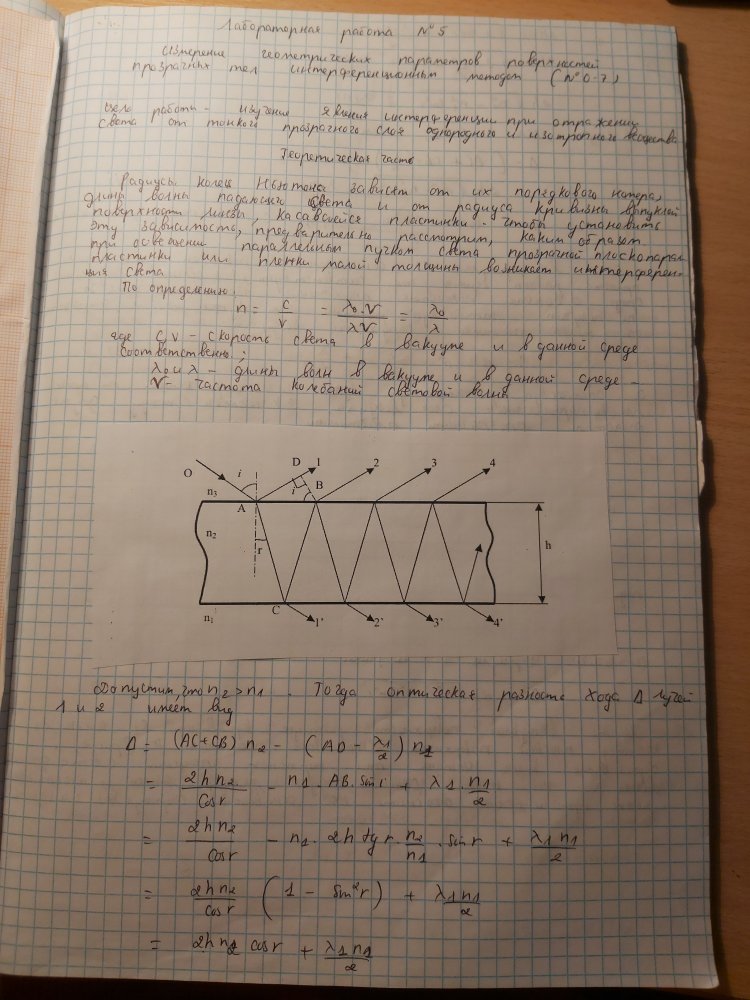 Лабораторная работа № 5
Измерение геометрических параметров поверхностей
прозрачных тел интерференционным методом (№ 0-7)
Цель работы - изучение явления интерференции при отражении
света от тонкого прозрачного слоя однородного и изотропного вещества
Теоретическая часть
Радиусы колец Ньютона зависят от их порядкового номера,
длины волны падающего света и от радиуса кривизны выпуклой
поверхности линзы, касающейся пластинки. Чтобы установить
эту зависимость, предварительно рассмотрим, каким образом
при освещении параллельным пучком света прозрачной плоскопарал
пластинки или пленки малой толщины возникает интерферен-
ция света
По определению
n = c/v = λ₀·ν/λν = λ₀/λ
где c, v - скорость света в вакууме и в данной среде
соответственно;
λ₀ и λ - длины волн в вакууме и в данной среде -
ν - частота колебаний световой волны
O i D 1 2 3 4
i B
n₃
A
n₂
r
h
C
n₁ 1' 2' 3' 4'
Допустим, что n₂ > n₁. Тогда оптическая разность хода Δ лучей
1 и 2 имеет вид
Δ = (AC+CB) n₂ - (AD - λ₁/2) n₁
= 2hn₂/cos r - n₁ · AB · sin i + λ₁ · n₁/2
= 2hn₂/cos r - n₁ · 2h tg r · n₂/n₁ · sin r + λ₁n₁/2
= 2hn₂/cos r (1 - sin²r) + λ₁n₁/2
= 2hn₂ cos r + λ₁n₁/2